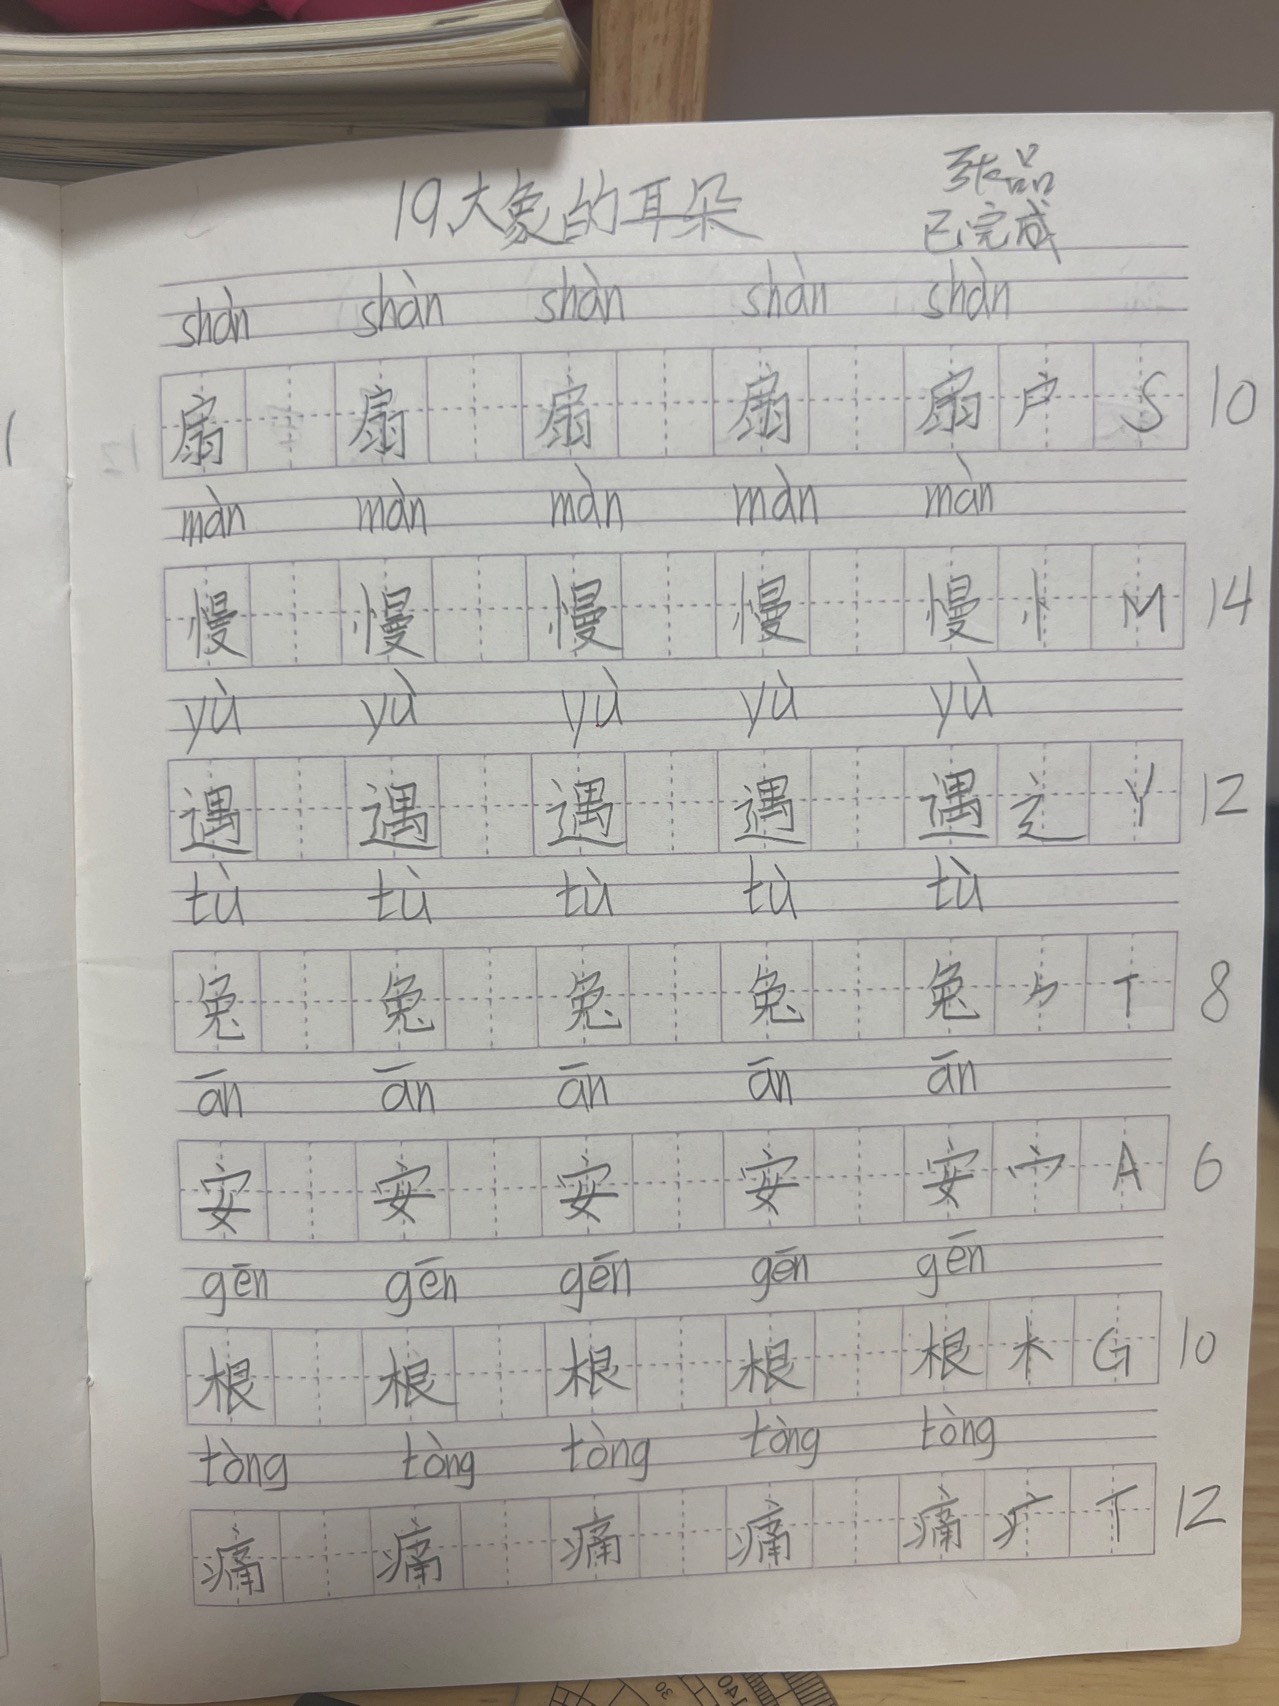 19、大象的耳朵 张品
已完成
shàn shàn shàn shàn shàn
扇 扇 扇 扇 扇 户 S 10
màn màn màn màn màn
慢 慢 慢 慢 慢 忄 M 14
yù yù yù yù yù
遇 遇 遇 遇 遇 辶 Y 12
tù tù tù tù tù
兔 兔 兔 兔 兔 ⺈ T 8
ān ān ān ān ān
安 安 安 安 安 宀 A 6
gēn gēn gēn gēn gēn
根 根 根 根 根 木 G 10
tòng tòng tòng tòng tòng
痛 痛 痛 痛 痛 疒 T 12
30 40